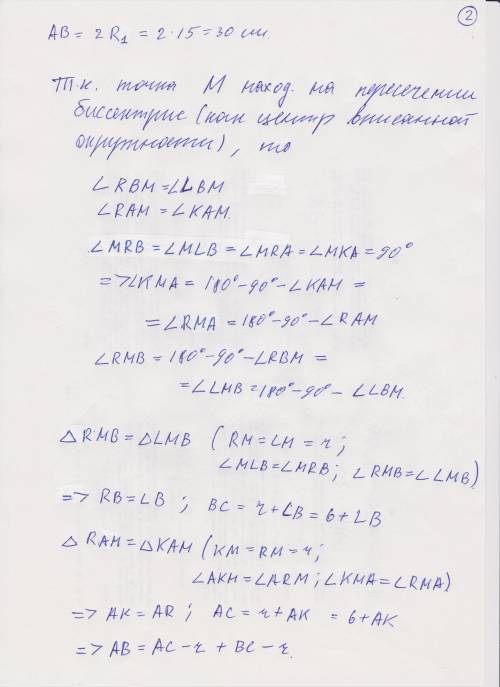 2
AB = 2R₁ = 2·15 = 30 см.
Т.к. точка M наход. на пересечении
биссектрис (как центр вписанной
окружности), то
∠RBM = ∠LBM
∠RAM = ∠KAM.
∠MRB = ∠MLB = ∠MRA = ∠MKA = 90°
=> ∠KMA = 180° - 90° - ∠KAM =
= ∠RMA = 180° - 90° - ∠RAM
∠RMB = 180° - 90° - ∠RBM =
= ∠LMB = 180° - 90° - ∠LBM.
△RMB = △LMB (RM = LM = r;
∠MLB = ∠MRB; ∠RMB = ∠LMB)
=> RB = LB; BC = r + LB = 6 + LB
△RAM = △KAM (KM = RM = r;
∠AKM = ∠ARM; ∠KMA = ∠RMA)
=> AK = AR; AC = r + AK = 6 + AK
=> AB = AC - r + BC - r.